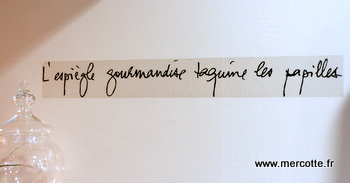 L'espiègle gourmandise taquine les papilles
www.mercotte.fr